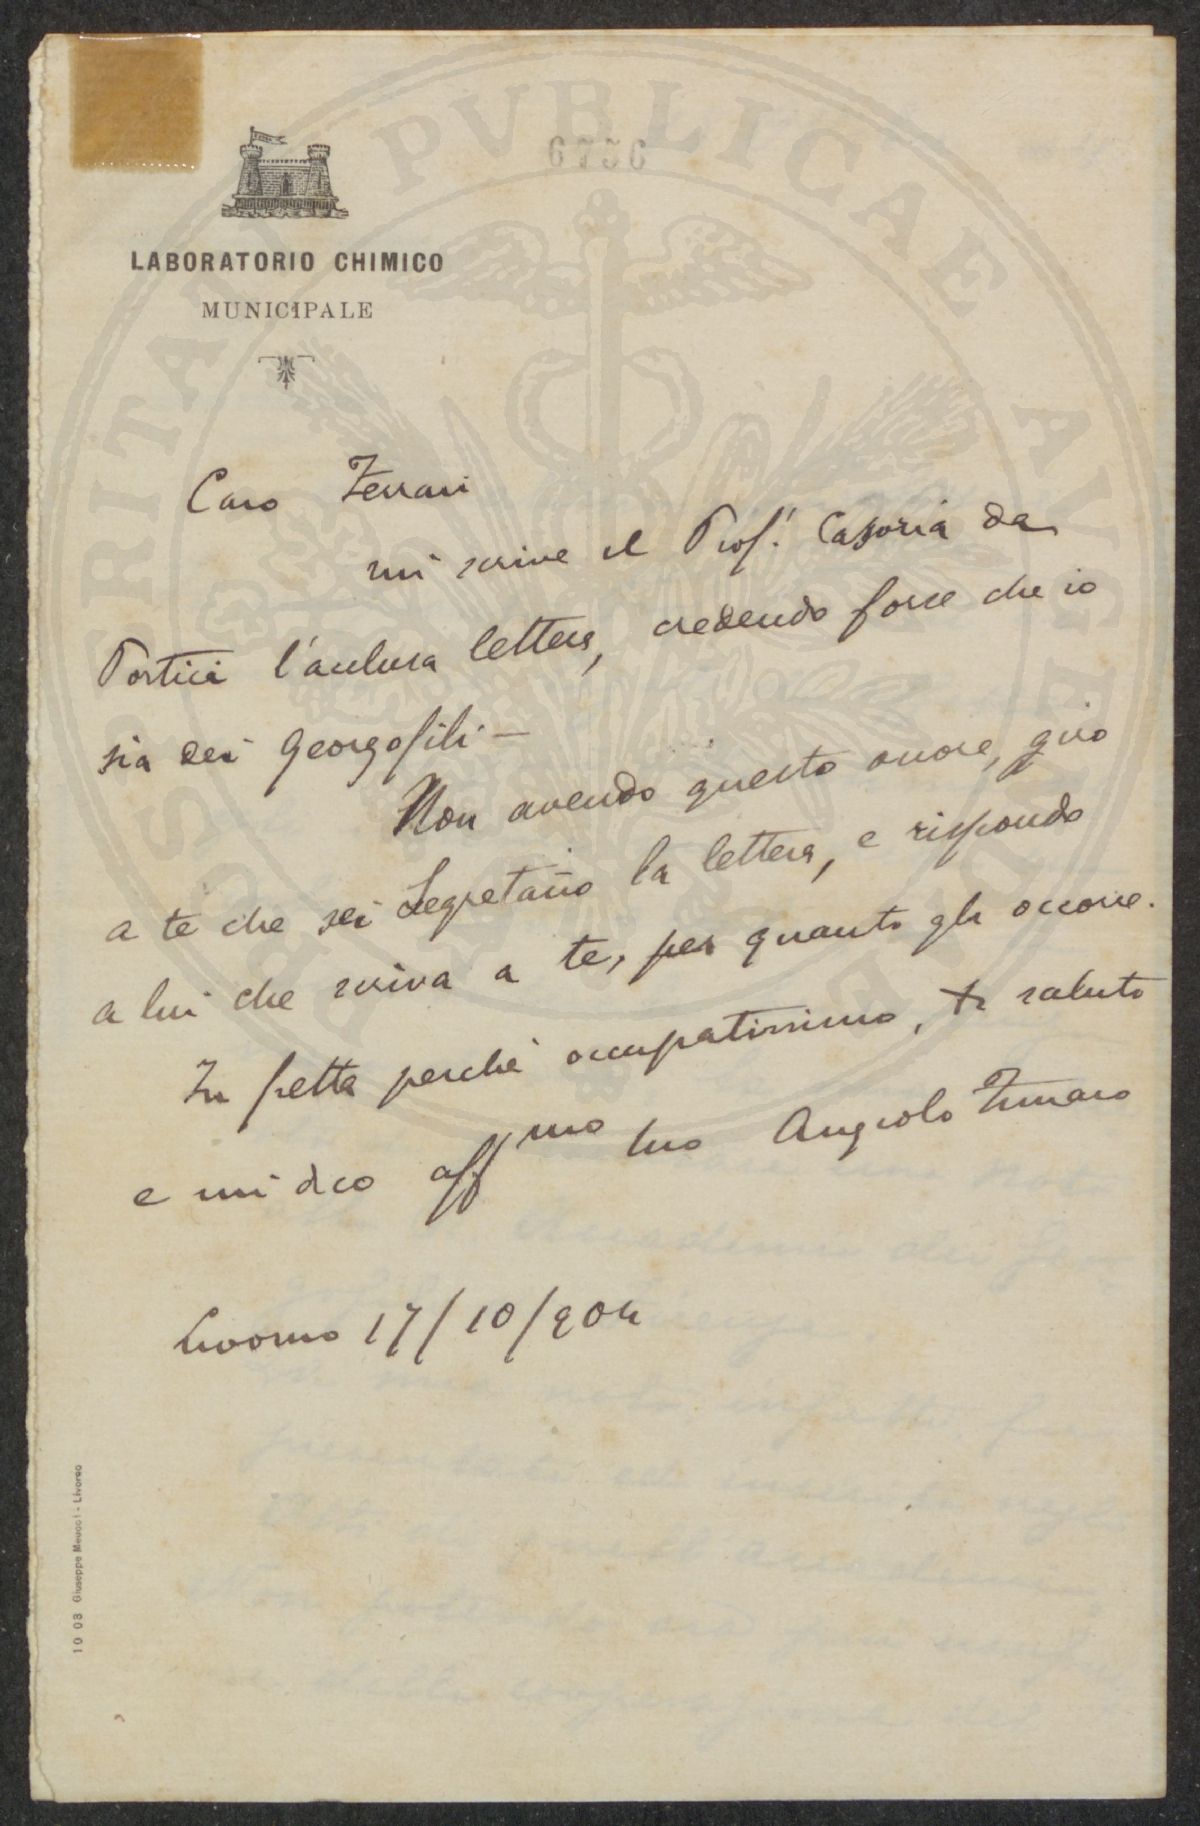 6756
LABORATORIO CHIMICO
MUNICIPALE
Caro Ferrari
mi scrive il Prof. Casoria da
Portici l'acclusa lettera, credendo forse che io
sia dei Georgofili -
Non avendo questo onore, giro
a te che sei Segretario la lettera, e rispondo
a lui che scriva a te, per quanto gli occorre.
In fretta perchè occupatissimo, ti saluto
e mi dico affmo tuo Angiolo Funaro
Livorno 17/10/904
1903 Giuseppe Meucci - Livorno
PVBLICAE